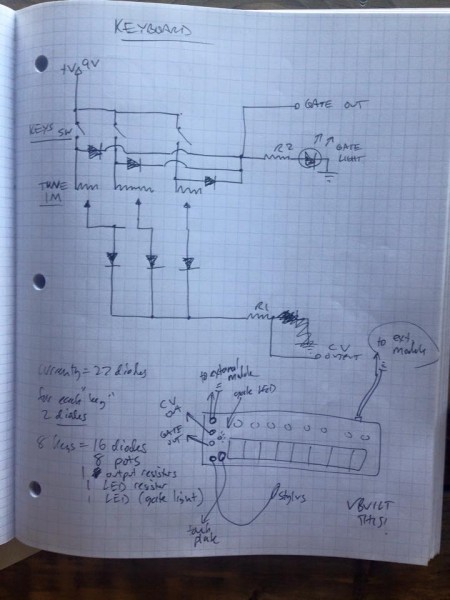 KEYBOARD
+V 9V
GATE OUT
KEYS
SW
R2
GATE
LIGHT
TUNE
1M
R1
CV
OUTPUT
to ext
module
currently = 22 diodes
for each "key"
2 diodes
8 keys = 16 diodes
8 pots
1 output resistors
1 LED resistor
1 LED (gate light)
to external
module
gate LED
CV
out
GATE
out
stylus
touch
plate
BUILT
THIS!